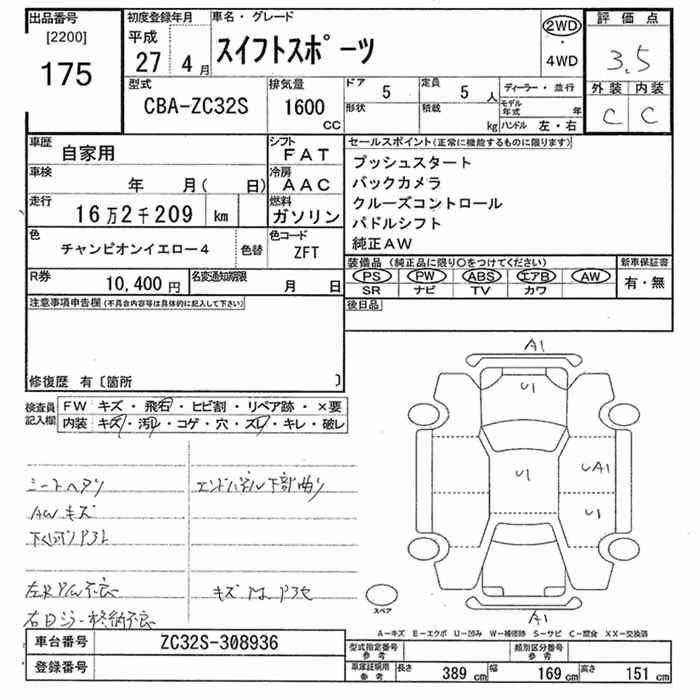 出品番号 初度登録年月 車名・グレード 評価点
[2200] 平成 2WD
175 27 4月 スイフトスポーツ ・ 3.5
4WD
型式 排気量 ドア 5 定員 5人 ディーラー・並行 外装 内装
CBA-ZC32S 1600 cc 形状 積載 kg モデル年式 年 C C
ハンドル 左・右
車歴 自家用 シフト FAT セールスポイント(正常に機能するものに限ります)
車検 年 月( 日) 冷房 AAC プッシュスタート
バックカメラ
走行 16万2千209 km 燃料 ガソリン クルーズコントロール
パドルシフト
色 チャンピオンイエロー4 色替 色コード ZFT 純正AW
装備品(純正品に限り○をつけてください) 新車保証書
R券 10,400円 名変通知期限 月 日 PS PW ABS エアB AW 有・無
SR ナビ TV カワ
注意事項申告欄(不具合内容等は具体的に記入して下さい) 後日品
修復歴 有〔箇所 〕
検査員記入欄 FW キズ・飛石・ヒビ割・リペア跡・×要
内装 キズ・汚レ・コゲ・穴・ズレ・キレ・破レ
A1
U1
U1 UA1
U1
A1
シートヘタリ エンドパネル下部曲り
AWキズ
左RPW不良
右日ジャー格納不良
スペア
A-キズ E-エクボ U-凹み W-補修跡 S-サビ C-腐食 XX-交換済
車台番号 ZC32S-308936 型式指定番号 参考 類別区分番号 参考
登録番号 車庫証明用 参考 長さ 389cm 幅 169cm 高さ 151cm